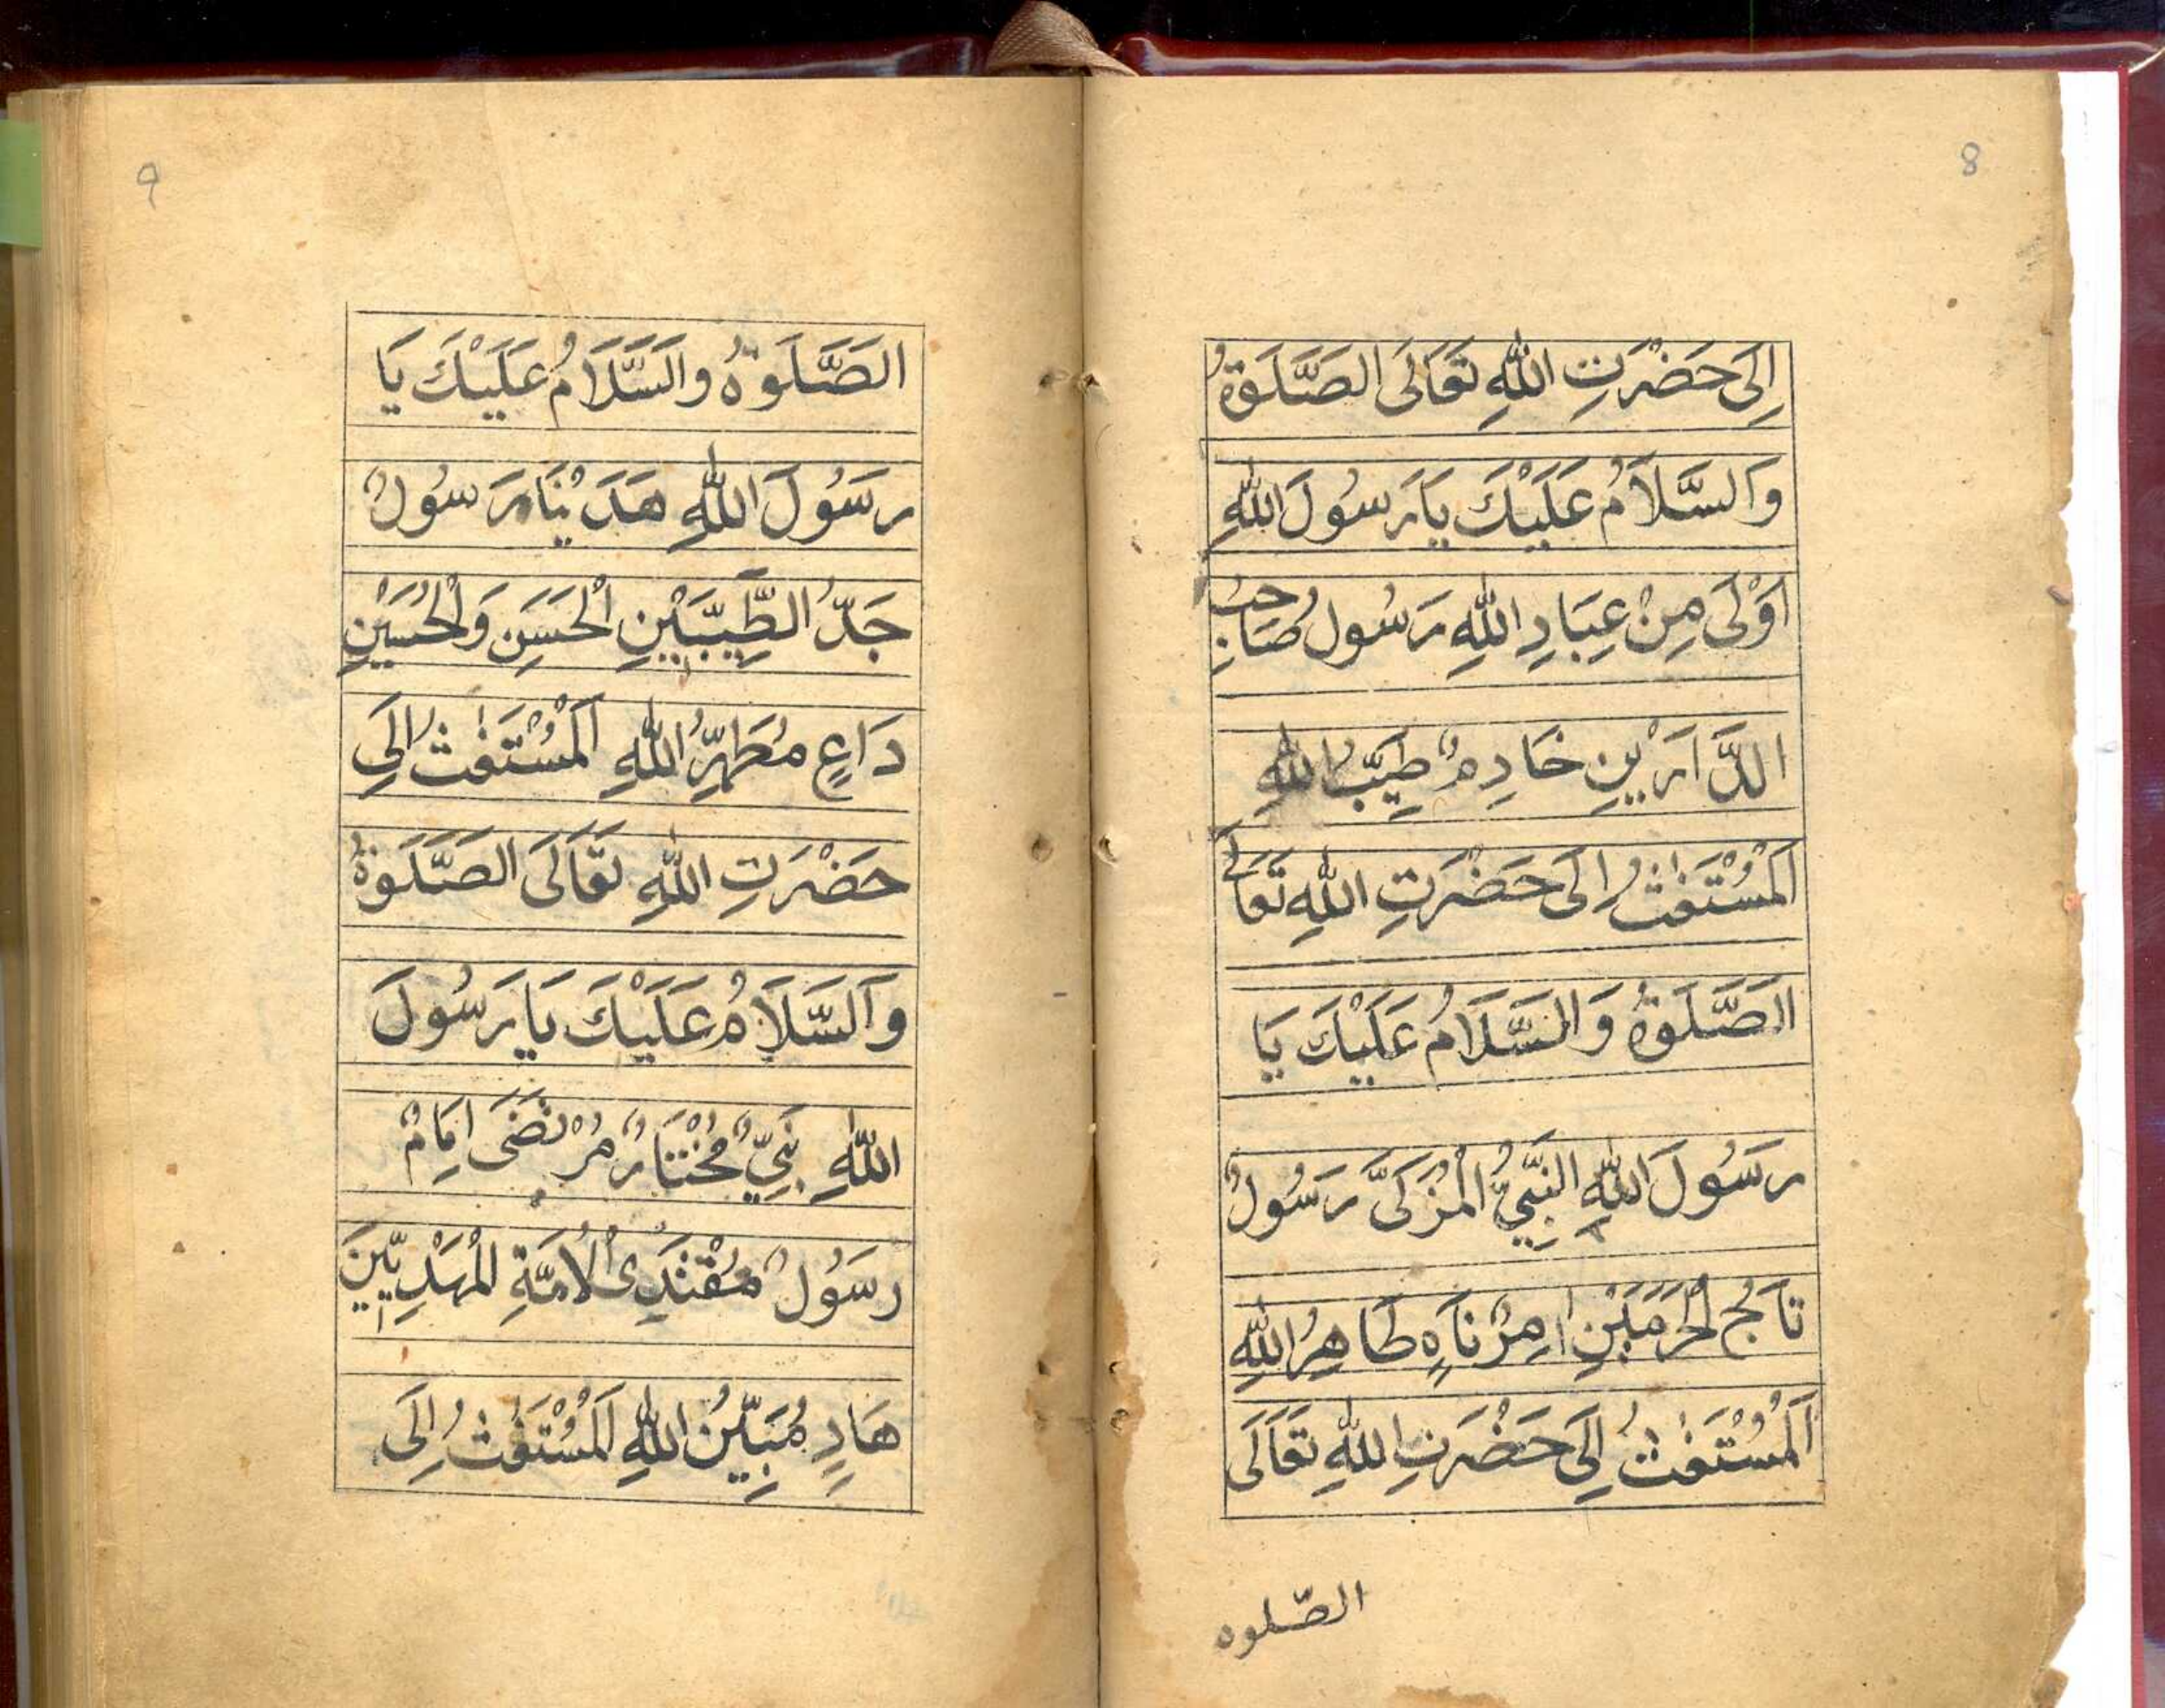 8
اِلَى حَضْرَتِ اللّٰهِ تَعَالَى الصَّلَوةُ
وَالسَّلَامُ عَلَيْكَ يَارَسُولَ اللّٰهِ
اَوْلَى مِنْ عِبَادِ اللّٰهِ رَسُولٌ صَاحِبُ
الدَّارَيْنِ خَادِمٌ طَيِّبُ اللّٰهِ
اَلْمُسْتَغٰثُ اِلَى حَضْرَتِ اللّٰهِ تَعَالَى
الصَّلَوةُ وَالسَّلَامُ عَلَيْكَ يَا
رَسُولَ اللّٰهِ النَّبِيُّ الْمُزَكَّى رَسُولٌ
تَاجُ الْحَرَمَيْنِ اٰمِرٌ نَاهٍ طَاهِرُ اللّٰهِ
اَلْمُسْتَغٰثُ اِلَى حَضْرَتِ اللّٰهِ تَعَالَى
الصّلوه
9
الصَّلَوةُ وَالسَّلَامُ عَلَيْكَ يَا
رَسُولَ اللّٰهِ هَدَيْنَا رَسُولٌ
جَدُّ الطَّيِّبَيْنِ الْحَسَنِ وَالْحُسَيْنِ
دَاعٍ مُطَهِّرُ اللّٰهِ اَلْمُسْتَغٰثُ اِلَى
حَضْرَتِ اللّٰهِ تَعَالَى الصَّلَوةُ
وَالسَّلَامُ عَلَيْكَ يَارَسُولَ
اللّٰهِ نَبِيٌّ مُخْتَارٌ مُرْتَضَى اِمَامٌ
رَسُولٌ مُقْتَدِى الْاُمَّةِ الْمَهْدِيِّينَ
هَادٍ مُبَيِّنُ اللّٰهِ اَلْمُسْتَغٰثُ اِلَى